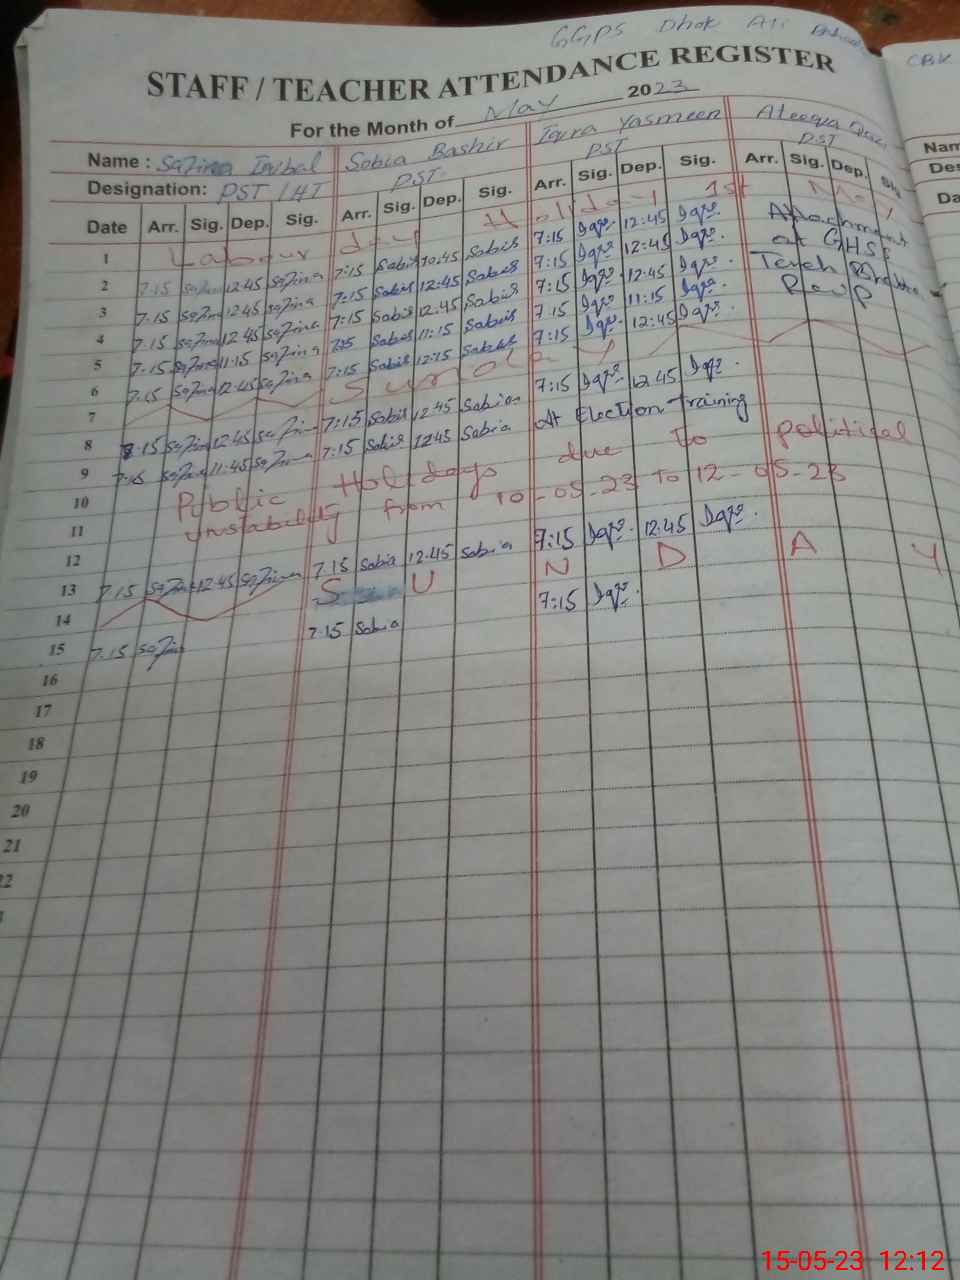 GGPS Dhok
STAFF / TEACHER ATTENDANCE REGISTER
For the Month of May 2023
Name : Sobia Bashir Iqra Yasmeen Ateeqa
Designation: PST / HT PST PST PST
Date Arr. Sig. Dep. Sig. Arr. Sig. Dep. Sig. Arr. Sig. Dep. Sig. Arr. Sig. Dep. Sig
1 Labour day Holiday 1st May
2 7:15 12:45 7:15 Sabis 10:45 Sabis 7:15 Iqra 12:45 Iqra Attachment
3 7:15 12:45 7:15 Sabis 12:45 Sabis 7:15 Iqra 12:45 Iqra at GHSS
4 7:15 12:45 7:15 Sabis 12:45 Sabis 7:15 Iqra 12:45 Iqra
5 7:15 11:15 Sabis 11:15 Sabis 7:15 Iqra 11:15 Iqra RWP
6 7:15 12:45 7:15 Sabis 12:15 Sabis 7:15 Iqra 12:45 Iqra
7 Sunday
8 7:15 12:45 7:15 Sabis 12:45 Sabia 7:15 Iqra 12:45 Iqra
9 7:15 11:45 7:15 Sabis 12:45 Sabia At Election Training
10 Public Holidays due to political
11 instability from 10-05-23 To 12-05-23
12
13 7:15 12:45 7:15 Sabia 12:45 Sabia 7:15 Iqra 12:45 Iqra
14 S U N D A Y
15 7:15 7:15 Sabia 7:15 Iqra
16
17
18
19
20
21
22
CBK
Nam
Des
Da
15-05-23 12:12